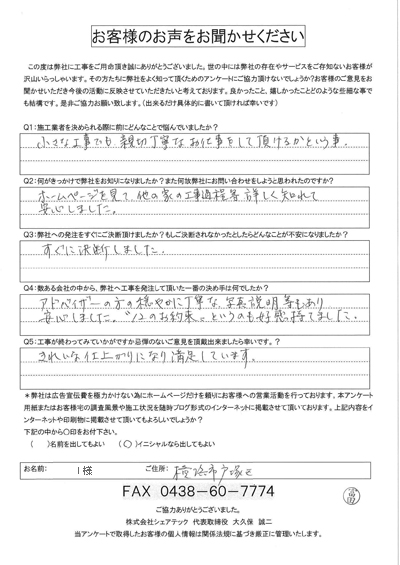 お客様のお声をお聞かせください
この度は弊社に工事をご用命頂き誠にありがとうございました。世の中には弊社の存在やサービスをご存知ないお客様が
沢山いらっしゃいます。その方たちに弊社をよく知って頂くためのアンケートにご協力頂けないでしょうか?お客様のご意見をお
聞かせいただき今後の活動に反映させていただきたいと考えております。良かったこと、嬉しかったことどのような些細な事で
も結構です。是非ご協力お願い致します。(出来るだけ具体的に書いて頂ければ幸いです)
Q1:施工業者を決められる際に前にどんなことで悩んでいましたか?
小さな工事でも、親切丁寧なお仕事をして頂けるかという事。
Q2:何がきっかけで弊社をお知りになりましたか?また何故弊社にお問い合わせをしようと思われたのですか?
ホームページを見て、他の家の工事過程等詳しく知れて
安心しました。
Q3:弊社への発注をすぐにご決断頂けましたか?もしご決断されなかったとしたらどんなことが不安になりましたか?
すぐに決断しました。
Q4:数ある会社の中から、弊社へ工事を発注して頂いた一番の決め手は何でしたか?
アドバイザーの方の穏やかに丁寧な、写真説明等もあり
安心しました。"12のお約束"というのも好感持てました。
Q5:工事が終わってみていかがですか忌憚のないご意見を頂戴出来ましたら幸いです。?
きれいな仕上がりになり満足しています。
*弊社は広告宣伝費を極力かけない為にホームページだけを頼りにお客様への営業活動を行っております。本アンケート
用紙またはお客様宅の調査風景や施工状況を随時ブログ形式のインターネットに掲載させて頂いております。上記内容をイ
ンターネットや印刷物に掲載させて頂いてもよろしいでしょうか?
下記の中から〇印をお付下さい。
( )名前を出してもよい (〇)イニシャルなら出してもよい
お名前: I 様 ご住所: 横浜市戸塚区
FAX 0438-60-7774
ご協力ありがとうございました。
株式会社シェアテック 代表取締役 大久保 誠二
当アンケートで取得したお客様の個人情報は関係法規に基づき厳正に管理いたします。